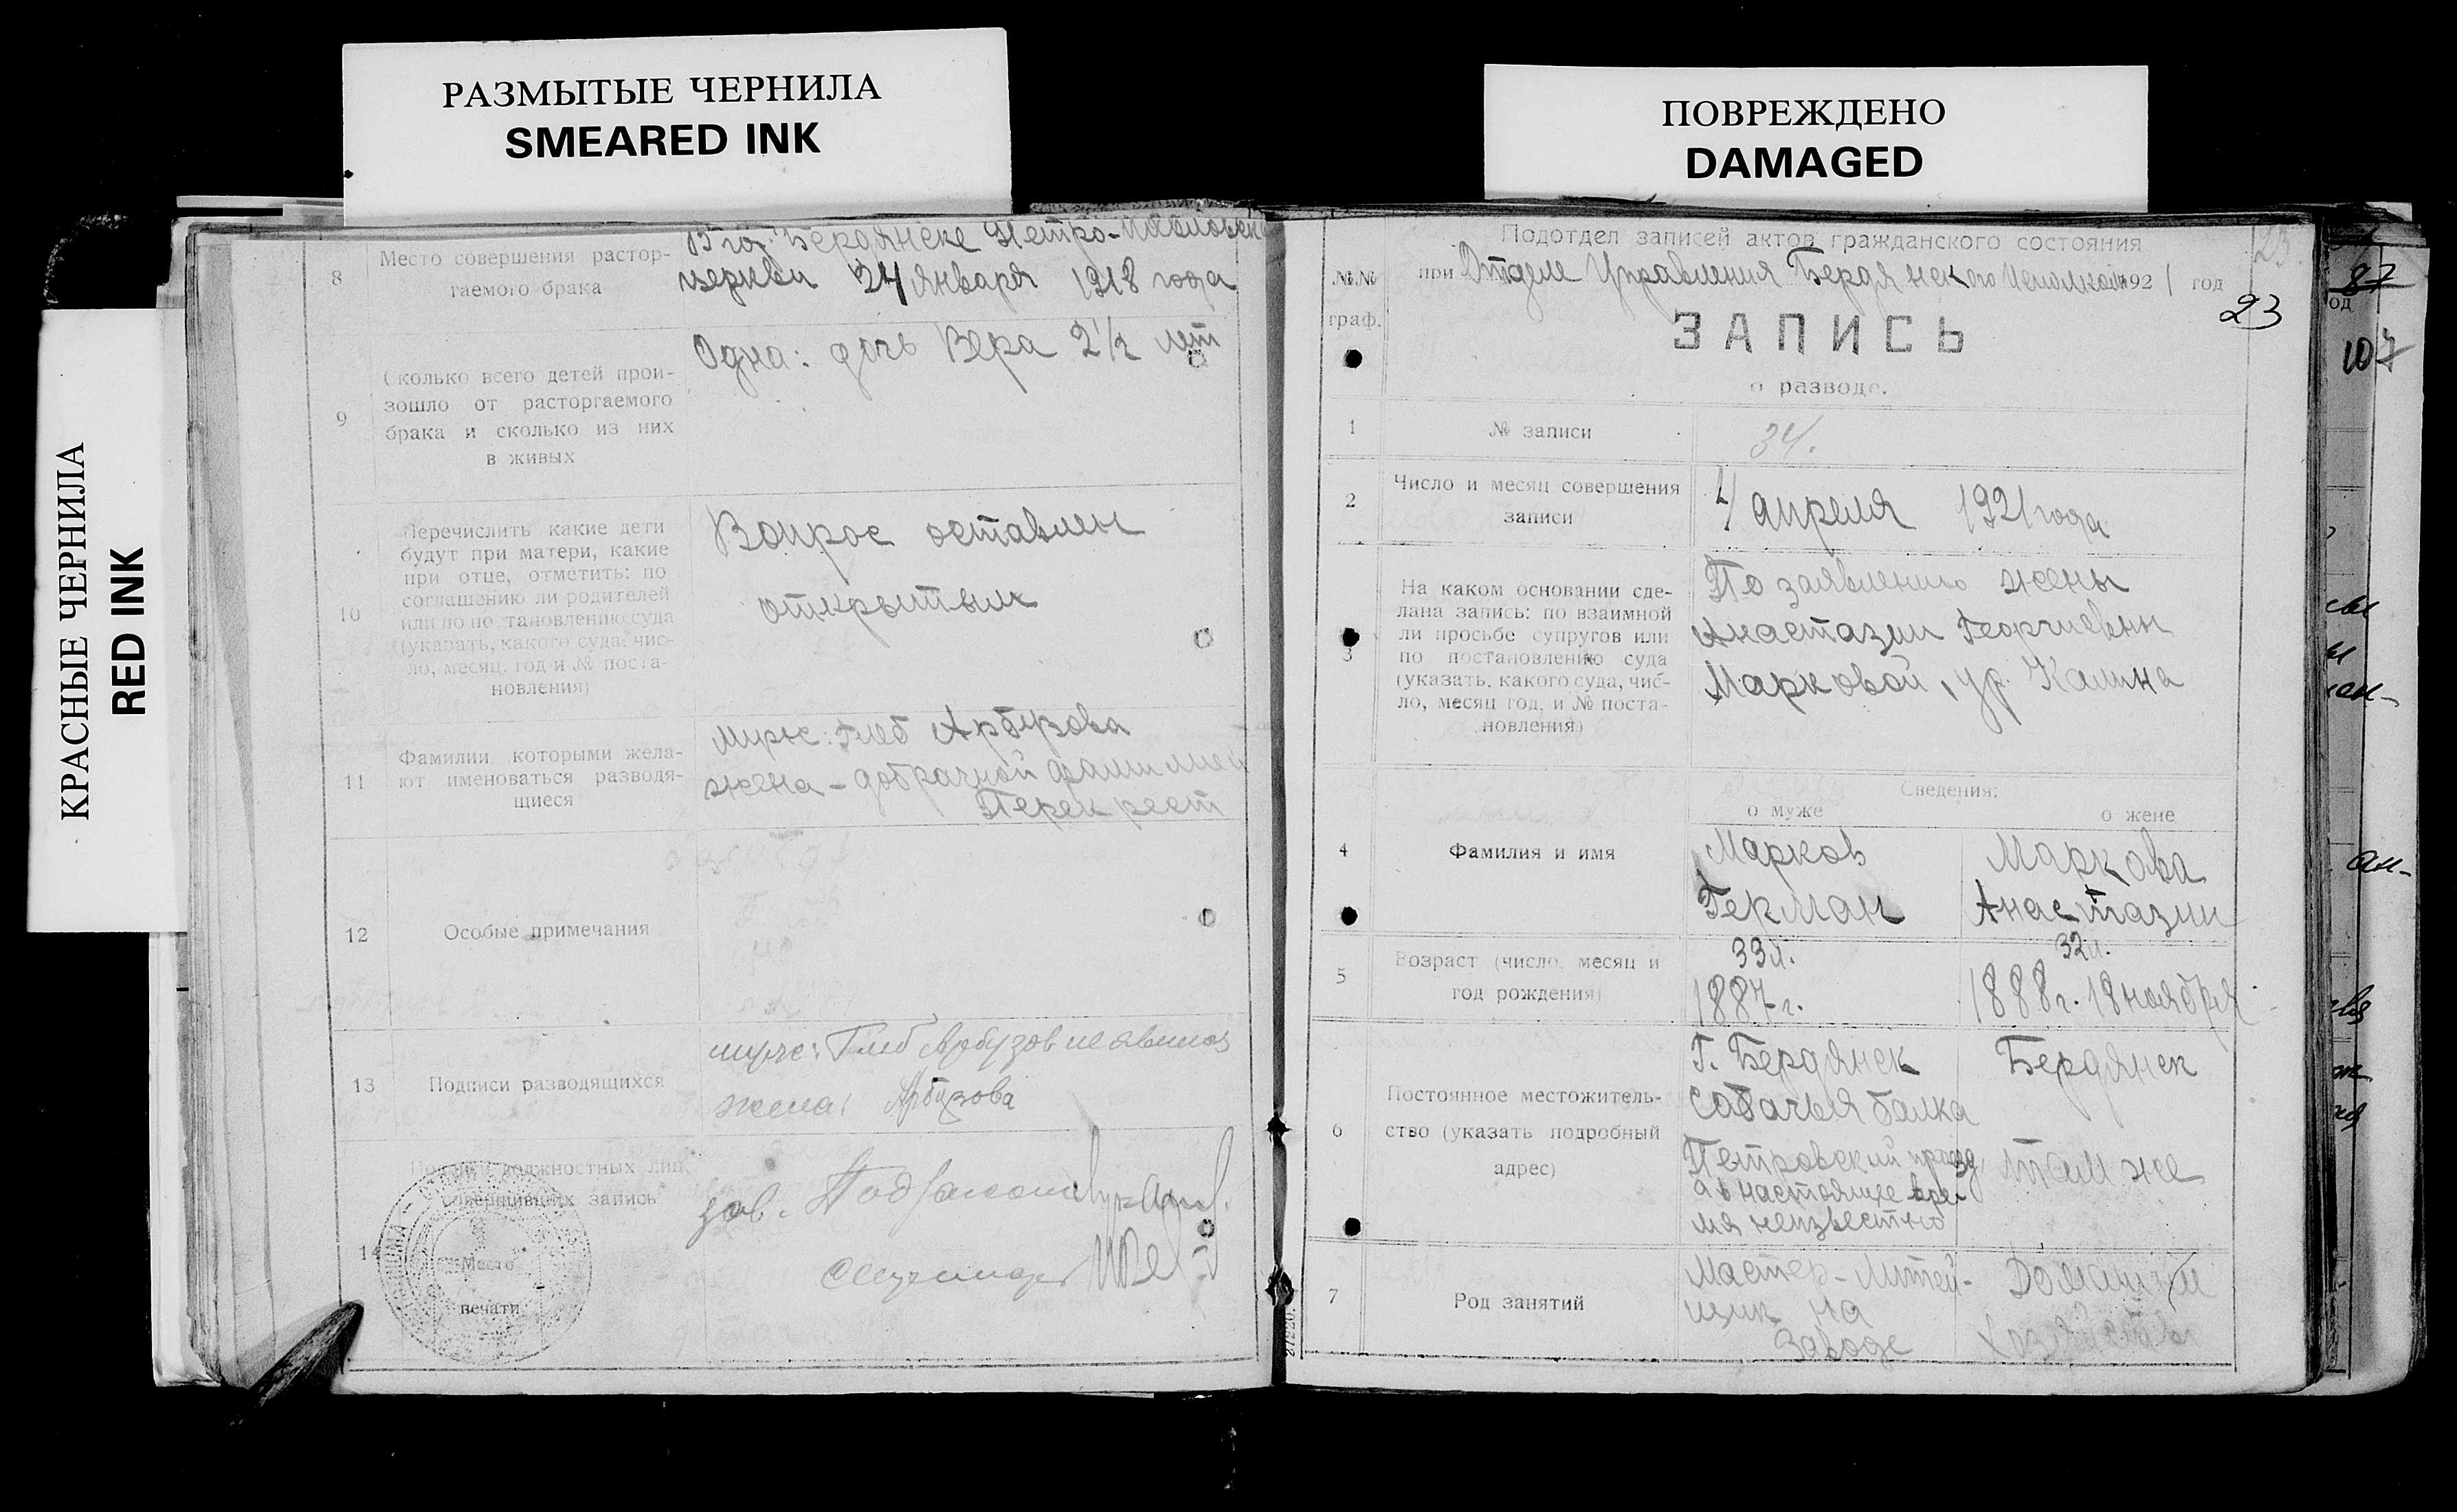 РАЗМЫТЫЕ ЧЕРНИЛА
SMEARED INK
ПОВРЕЖДЕНО
DAMAGED
КРАСНЫЕ ЧЕРНИЛА
RED INK
8
Место совершения растор-
гаемого брака
В гор. Бердянске Петро-Павловск
церкви 24 января 1918 года
9
Сколько всего детей прои-
зошло от расторгаемого
брака и сколько из них
в живых
Одна: дочь Вера 2½ лет
10
Перечислить какие дети
будут при матери, какие
при отце, отметить: по
соглашению ли родителей
или по по тановлению суда
(указать, какого суда, чис-
ло, месяц, год и № поста-
новления)
Вопрос оставлен
открытым
11
Фамилии, которыми жела-
ют именоваться разводя-
щиеся
муж: Глеб Арбузова
жена - добрачной фамилией
Перекрест
12
Особые примечания
13
Подписи разводящихся
муж: Глеб Арбузов не явился
жена: Арбузова
14
Подписи должностных лиц,
совершивших запись
Место
печати
зав.
23
Подотдел записей актов гражданского состояния
№№
граф.
при Отделе Управления Бердянского Исполкома 1921 год
23
ЗАПИСЬ
о разводе.
1
№ записи
34.
2
Число и месяц совершения
записи
4 апреля 1921 года
3
На каком основании сде-
лана запись: по взаимной
ли просьбе супругов или
по постановлению суда
(указать, какого суда, чис-
ло, месяц год, и № поста-
новления)
По заявлению жены
Анастазии Георгиевны
Марковой, ур. Калина
Сведения:
о муже
о жене
4
Фамилия и имя
Марков
Герман
Маркова
Анастазии
5
Возраст (число, месяц и
год рождения)
33 л.
1887 г.
32 л.
1888 г. 18 ноября
6
Постоянное местожитель-
ство (указать подробный
адрес)
Г. Бердянск
Собачья балка
Петровский проезд
а в настоящее вре-
мя неизвестно
Бердянск
там же
7
Род занятий
Мастер-Литей-
щик на
Заводе
Домашним
хозяйством
21220.
87
од
107